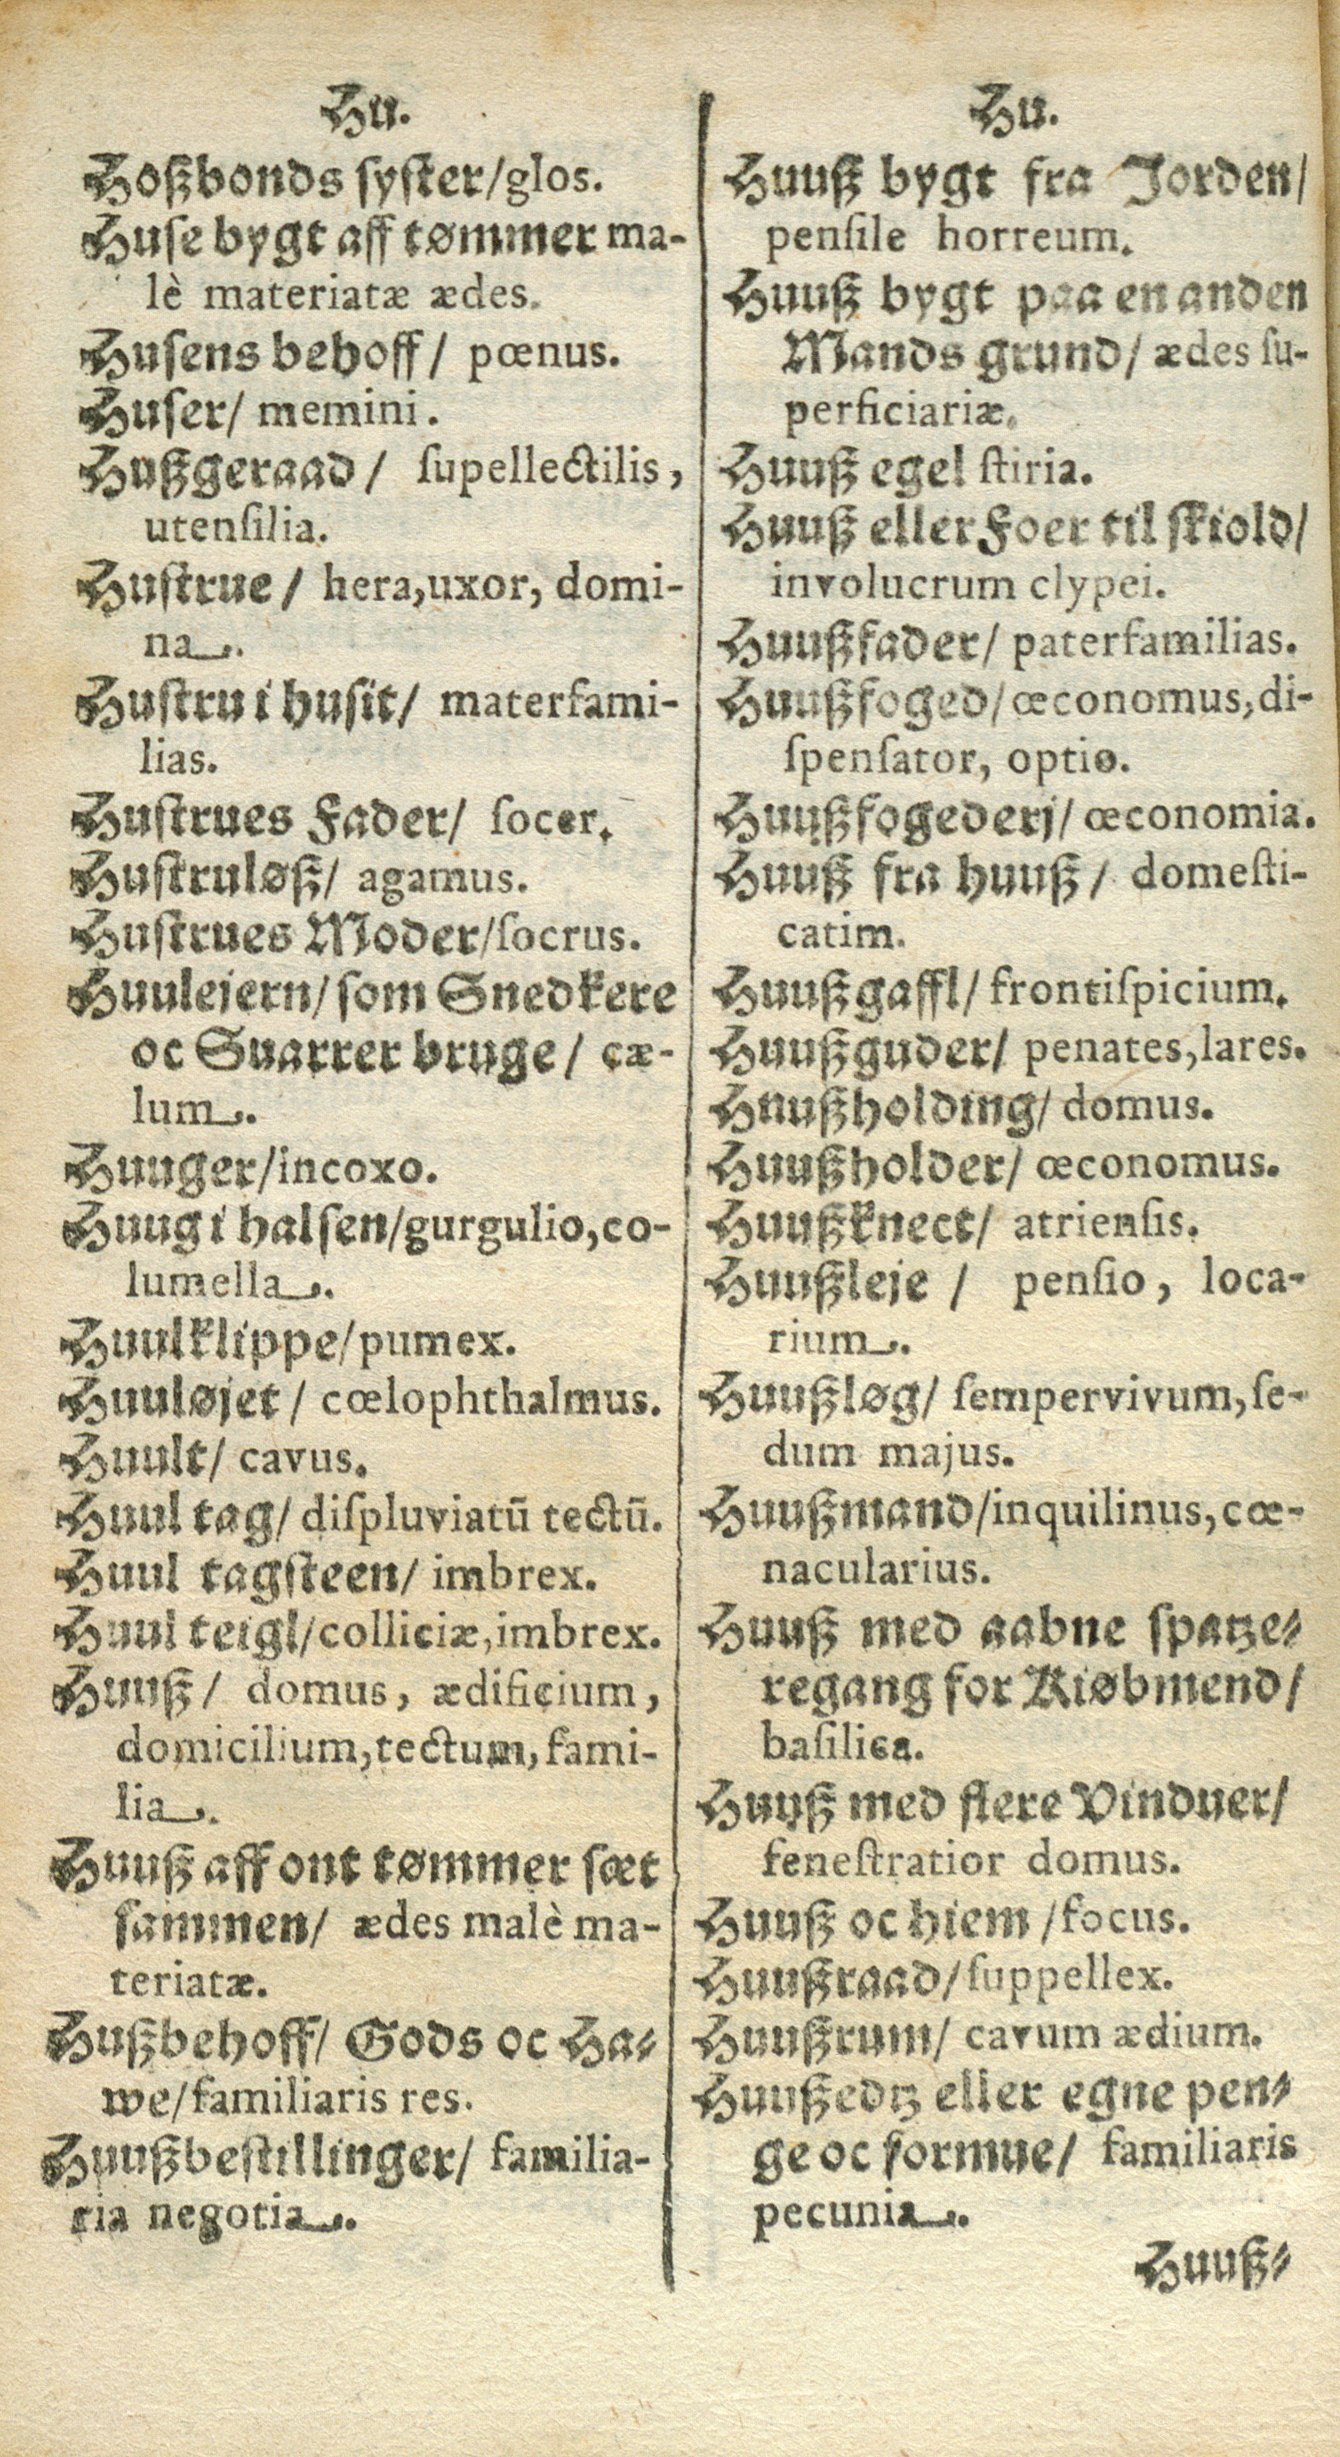 Hu.
Hoßbonds syster/glos.
Huse bygt aff tømmer ma-
lè materiatæ ædes.
Husens behoff/ pœnus.
Huser/ memini.
Hußgeraad/ ſupellectilis,
utenſilia.
Hustrue/ hera,uxor, domi-
na.
Hustru i husit/ materfami-
lias.
Hustrues Fader/ ſocer.
Hustruløß/ agamus.
Hustrues Moder/ſocrus.
Huulejern/ som Snedkere
oc Suarrer bruge/ cæ-
lum.
Huuger/incoxo.
Huug i halsen/gurgulio,co-
lumella.
Huulklippe/pumex.
Huuløjet/ cœlophthalmus.
Huult/ cavus.
Huul tag/ diſpluviatū tectū.
Huul tagsteen/ imbrex.
Huul teigl/colliciæ,imbrex.
Huuß/ domus, ædificium,
domicilium,tectum,fami-
lia.
Huuß aff ont tømmer sæt
sammen/ ædes malè ma-
teriatæ.
Hußbehoff/ Gods oc Ha-
we/familiaris res.
Huußbestillinger/ familia-
ria negotia.
Hu.
Huuß bygt fra Jorden/
penſile horreum.
Huuß bygt paa en anden
Mands grund/ ædes ſu-
perficiariæ.
Huuß egel ſtiria.
Huuß eller Foer til skiold/
involucrum clypei.
Huußfader/ paterfamilias.
Huußfoged/œconomus,di-
ſpenſator, optio.
Huußfogederj/ œconomia.
Huuß fra huuß/ domeſti-
catim.
Huußgaffl/ frontiſpicium.
Huußguder/ penates,lares.
Hnußholding/ domus.
Huußholder/ œconomus.
Huußknect/ atrienſis.
Huußleje / penſio, loca-
rium.
Huußløg/ ſempervivum,ſe-
dum majus.
Huußmand/inquilinus,cœ-
nacularius.
Huuß med aabne spatze-
regang for Kiøbmend/
baſilica.
Huuß med flere Vinduer/
feneſtratior domus.
Huuß oc hiem /focus.
Huußraad/ſuppellex.
Huußrum/ cavum ædium.
Huußedtz eller egne pen-
ge oc formue/ familiaris
pecunia.
Huuß-